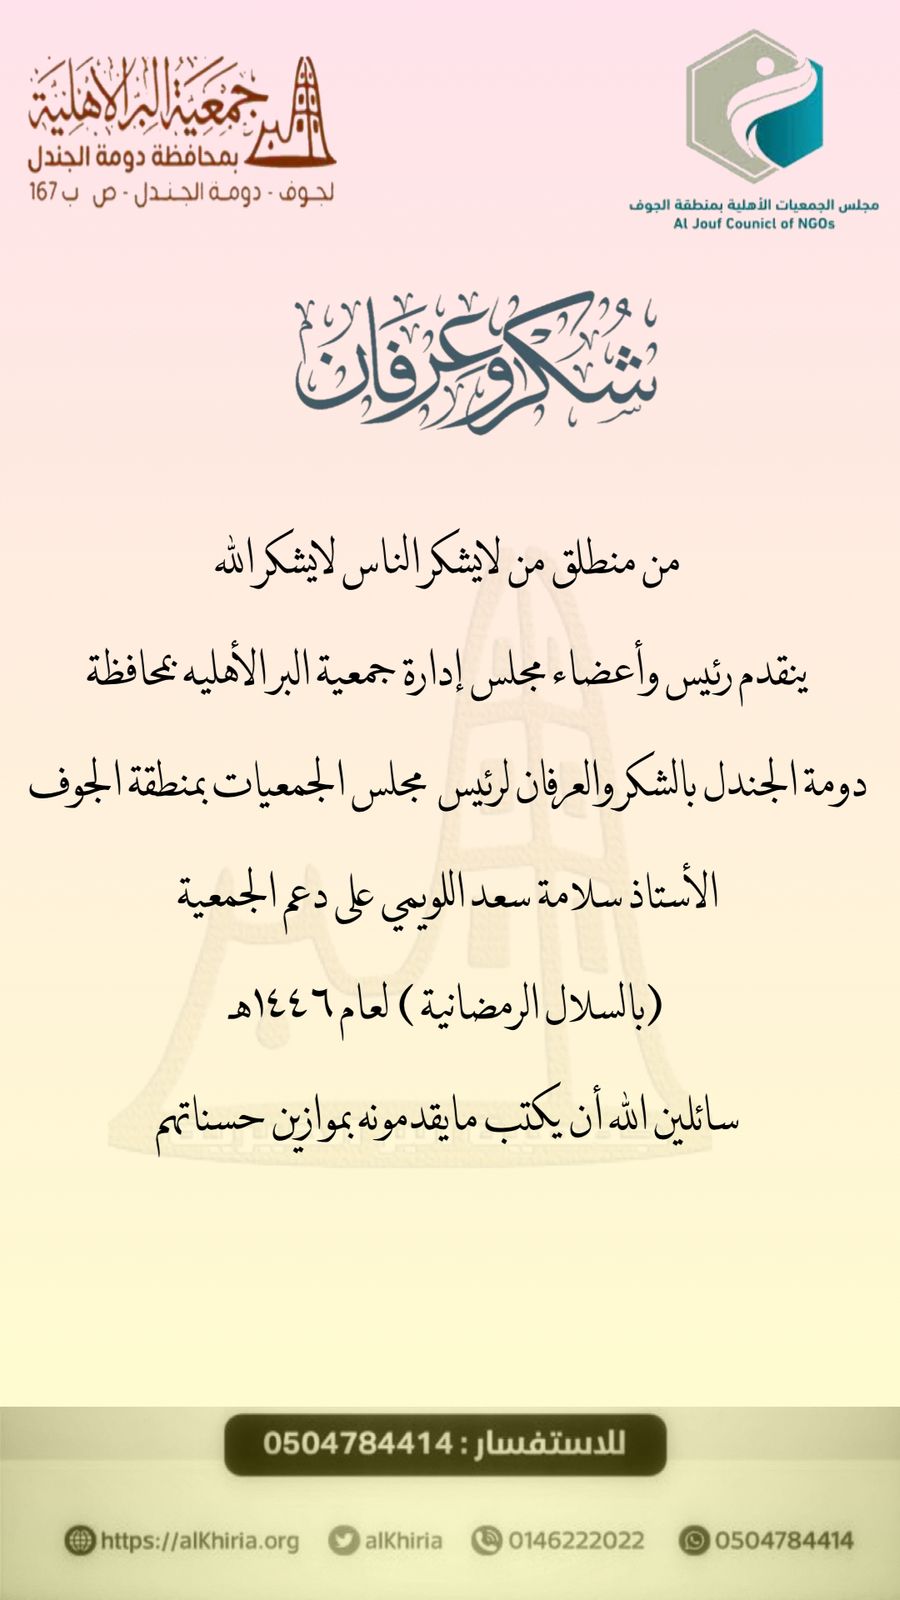 جمعية البر الأهلية
البر
بمحافظة دومة الجندل
لجوف - دومة الجندل - ص ب 167
مجلس الجمعيات الأهلية بمنطقة الجوف
Al Jouf Counicl of NGOs
شكر وعرفان
من منطلق من لايشكر الناس لايشكر الله
ينقدم رئيس وأعضاء مجلس إدارة جمعية البر الأهليه بمحافظة
دومة الجندل بالشكر والعرفان لرئيس مجلس الجمعيات بمنطقة الجوف
الأستاذ سلامة سعد اللويمي على دعم الجمعية
(بالسلال الرمضانية ) لعام ١٤٤٦هـ
سائلين الله أن يكتب مايقدمونه بموازين حسناتهم
للاستفسار : 0504784414
https://alKhiria.org alKhiria 0146222022 0504784414